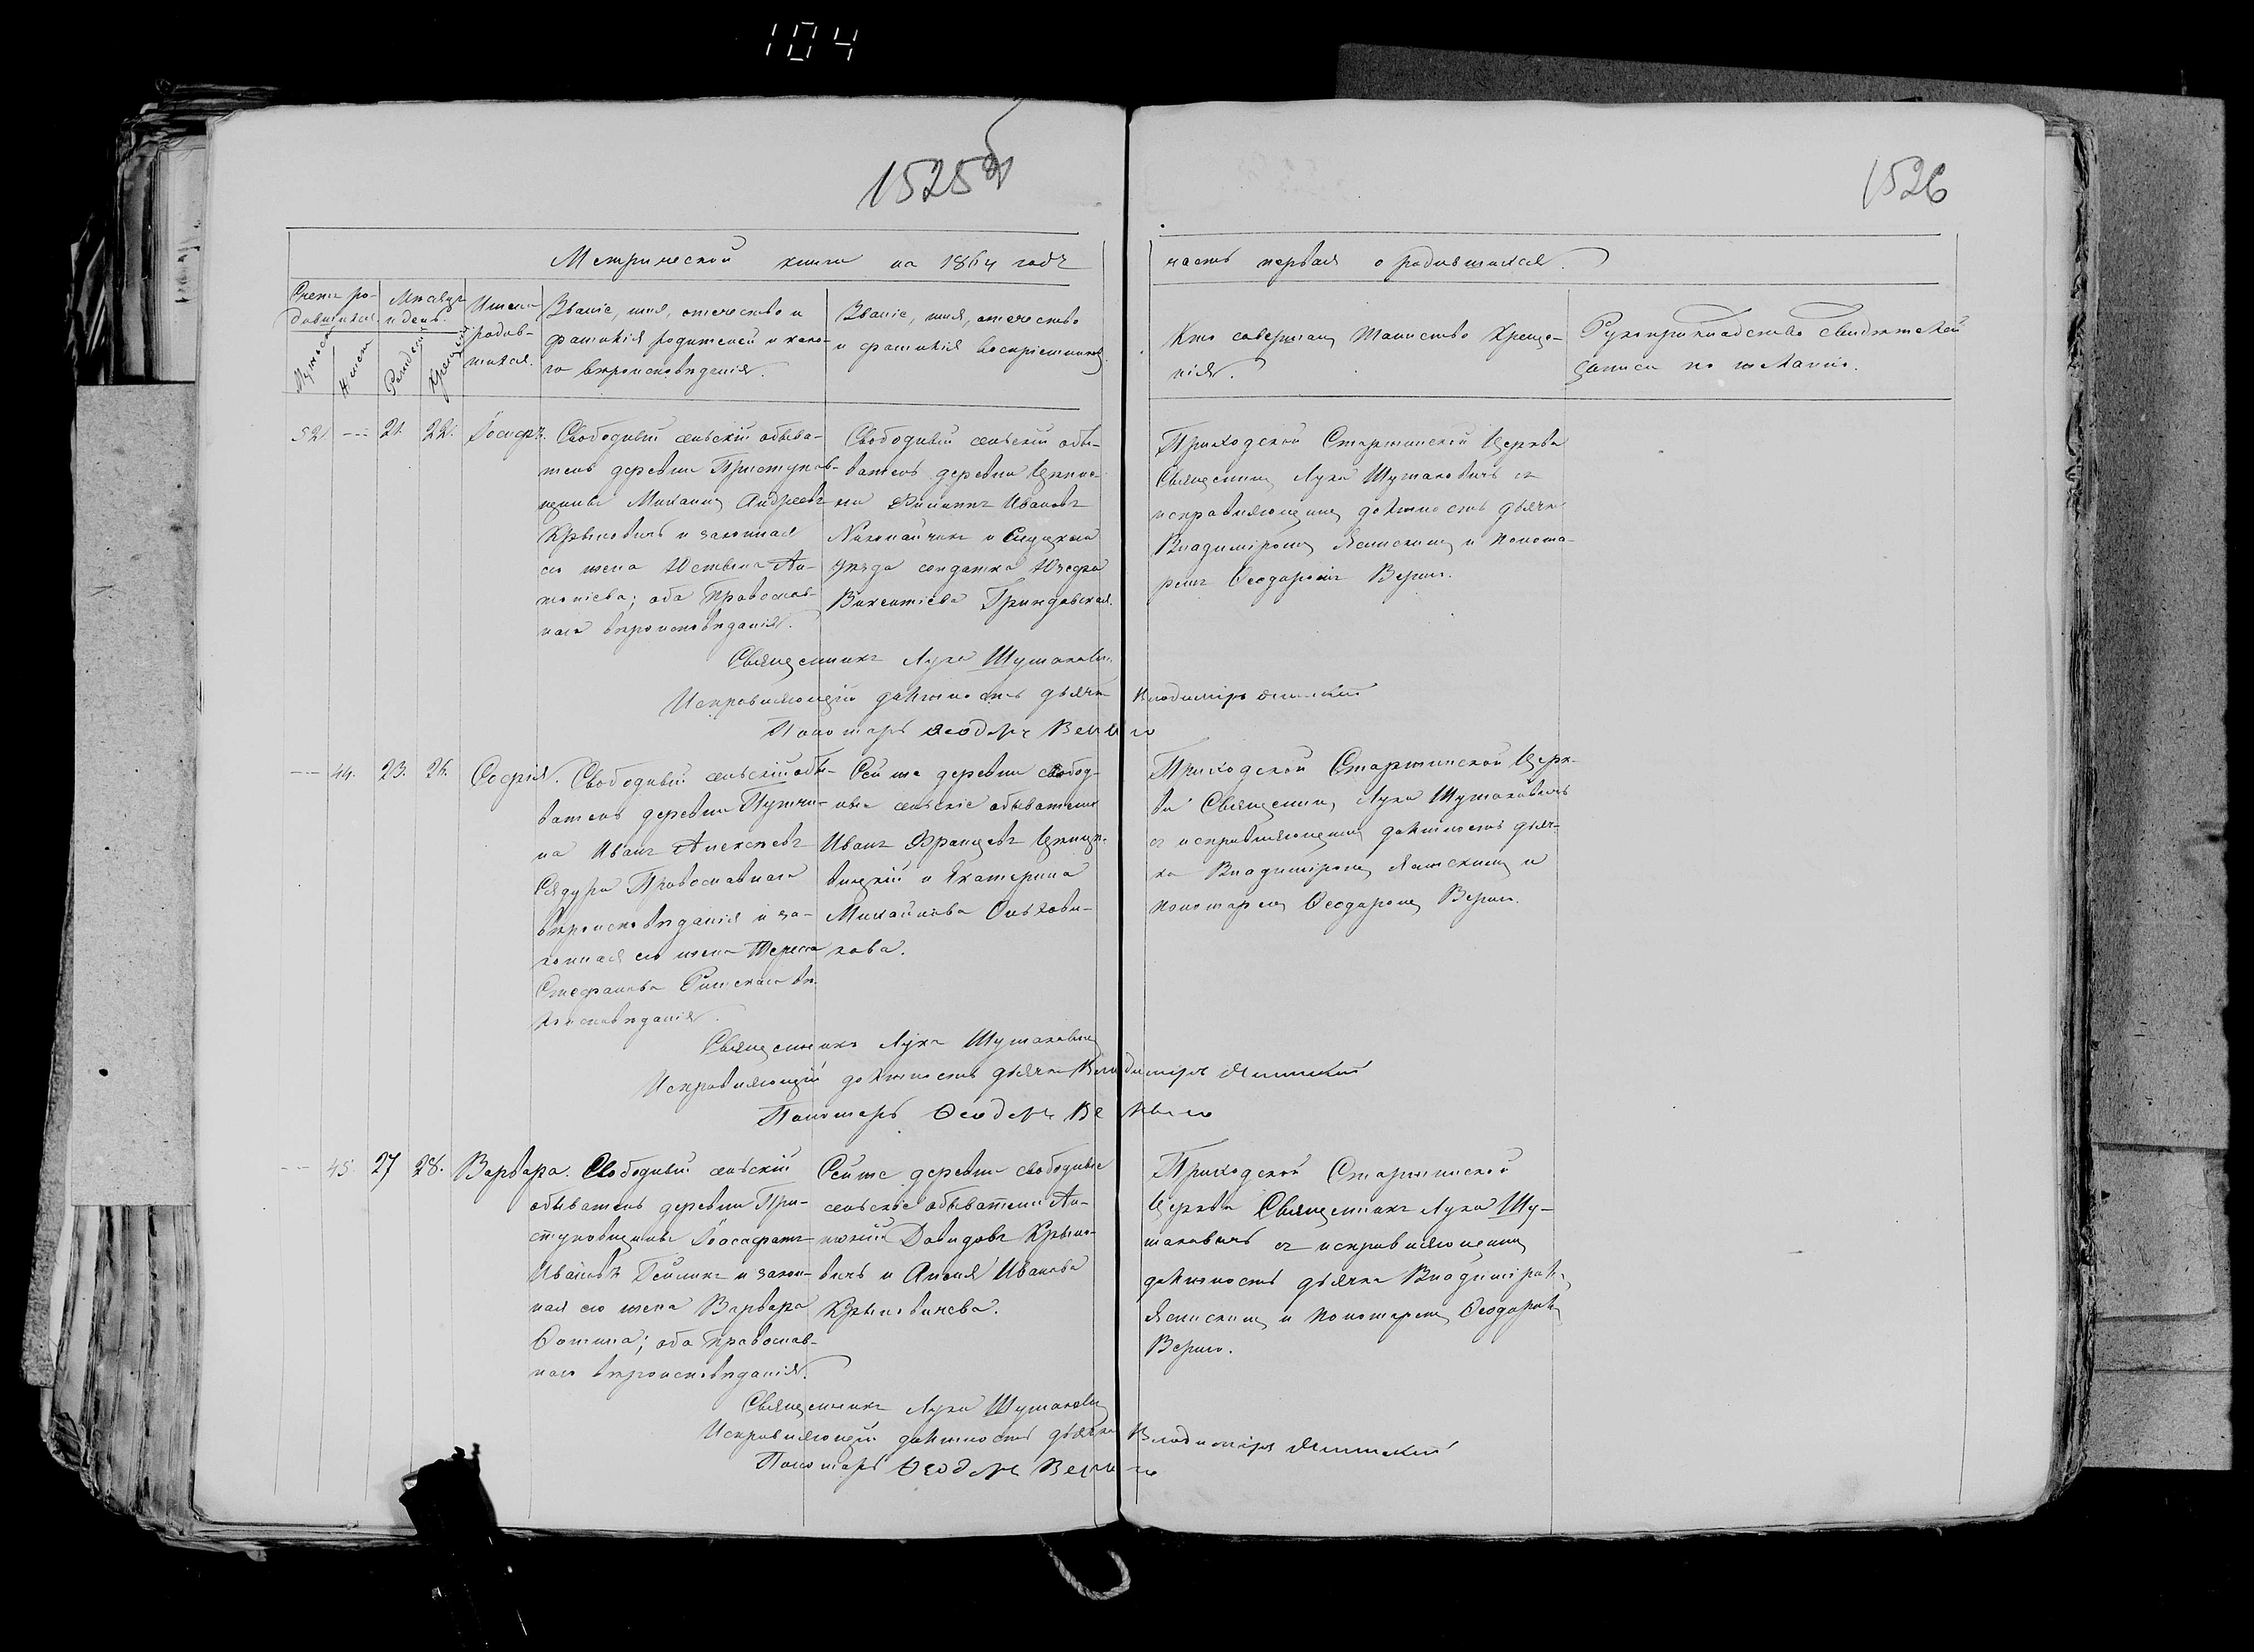 104
1525об
1526
Метрической книги на 1864 годъ
часть первая о родившихся.
Счетъ ро-
дившихся.
Мужеск
Женск
Мѣсяцъ
и день.
Рожден
Крещен
Имена
родив-
шихся.
Званіе, имя, отчество и
фамилія родителей и како-
го вѣроисповѣданія.
Званіе, имя, отчество
и фамилія воспріемниковъ.
Кто совершалъ таинство креще-
нія.
Рукоприкладство свидѣтелей
записи по желанію.
52. --- 21. 22. Іосифъ.
Свободный сельскій обыва-
тель деревни Приступов-
щины Михаилъ Андреевъ
Крылович и законная
его жена Юстына Ан-
тоніева; оба Православ-
наго вѣроисповѣданія.
Свободный сельскій обы-
ватель деревни
Филиппъ Ивановъ
и Слуцкаго
уѣзда солдатка Юзефа
Викентіева
Приходской Старчинской Церкви
Священникъ Лука Шумаковичъ съ
исправляющимъ должность дьячка
Владимиромъ и понома-
ремъ Ѳеодоромъ Верыго.
Священникъ Лука Шумакович
Исправляющій должность дьячка Владиміръ
Пономарь Ѳеодоръ Верыго
--- 44. 23. 26. Софія.
Свободный сельскій обы-
ватель деревни
Иванъ Алексѣевъ
Сядура Православнаго
вѣроисповѣданія и за-
конная его жена Тереса
Стефанова Римскаго вѣ-
роисповѣданія.
Сей же деревни свобод-
ные сельскіе обыватели
Иванъ Францевъ
и Екатерина
Михайлова Ольхови-
кова.
Приходской Старчинской Церк-
ви Священникъ Лука Шумаковичъ
съ исправляющимъ должность дьяч-
ка Владимиромъ и
пономаремъ Ѳеодоромъ Верыго.
Священникъ Лука Шумакович
Исправляющій должность дьячка Владиміръ
Пономарь Ѳеодоръ Верыго
--- 45. 27 28. Варвара.
Свободный сельскій
обыватель деревни При-
ступовщины Іоасафатъ
Ивановъ и закон-
ная его жена Варвара
Фомина; оба Православ-
наго вѣроисповѣданія.
Сей же деревни свободные
сельскіе обыватели Ан-
тоній Давидовъ Крыло-
вичъ и Анна Иванова
Крыловичева.
Приходской Старчинской
Церкви Священникъ Лука Шу-
маковичъ съ исправляющимъ
должность дьячка Владиміромъ
и пономаремъ Ѳеодоромъ
Верыго.
Священникъ Лука Шумакович
Исправляющій должность дьячка Владиміръ
Пономарь Ѳеодоръ Верыго